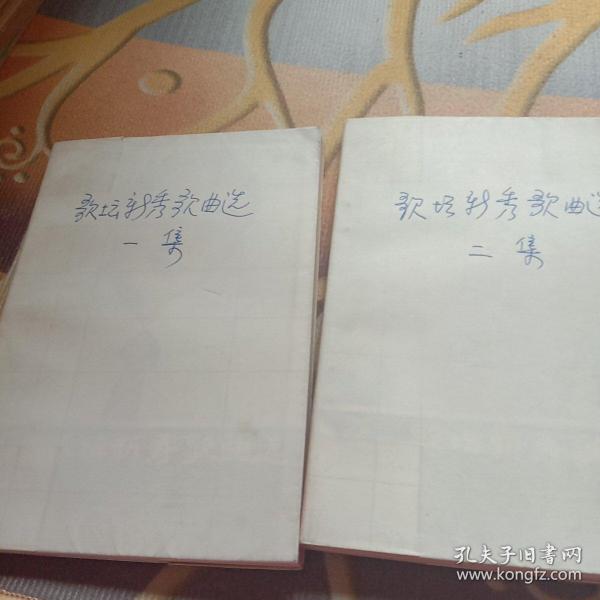 歌坛新秀歌曲选
一集
歌坛新秀歌曲选
二集
孔夫子旧书网
www.kongfz.com